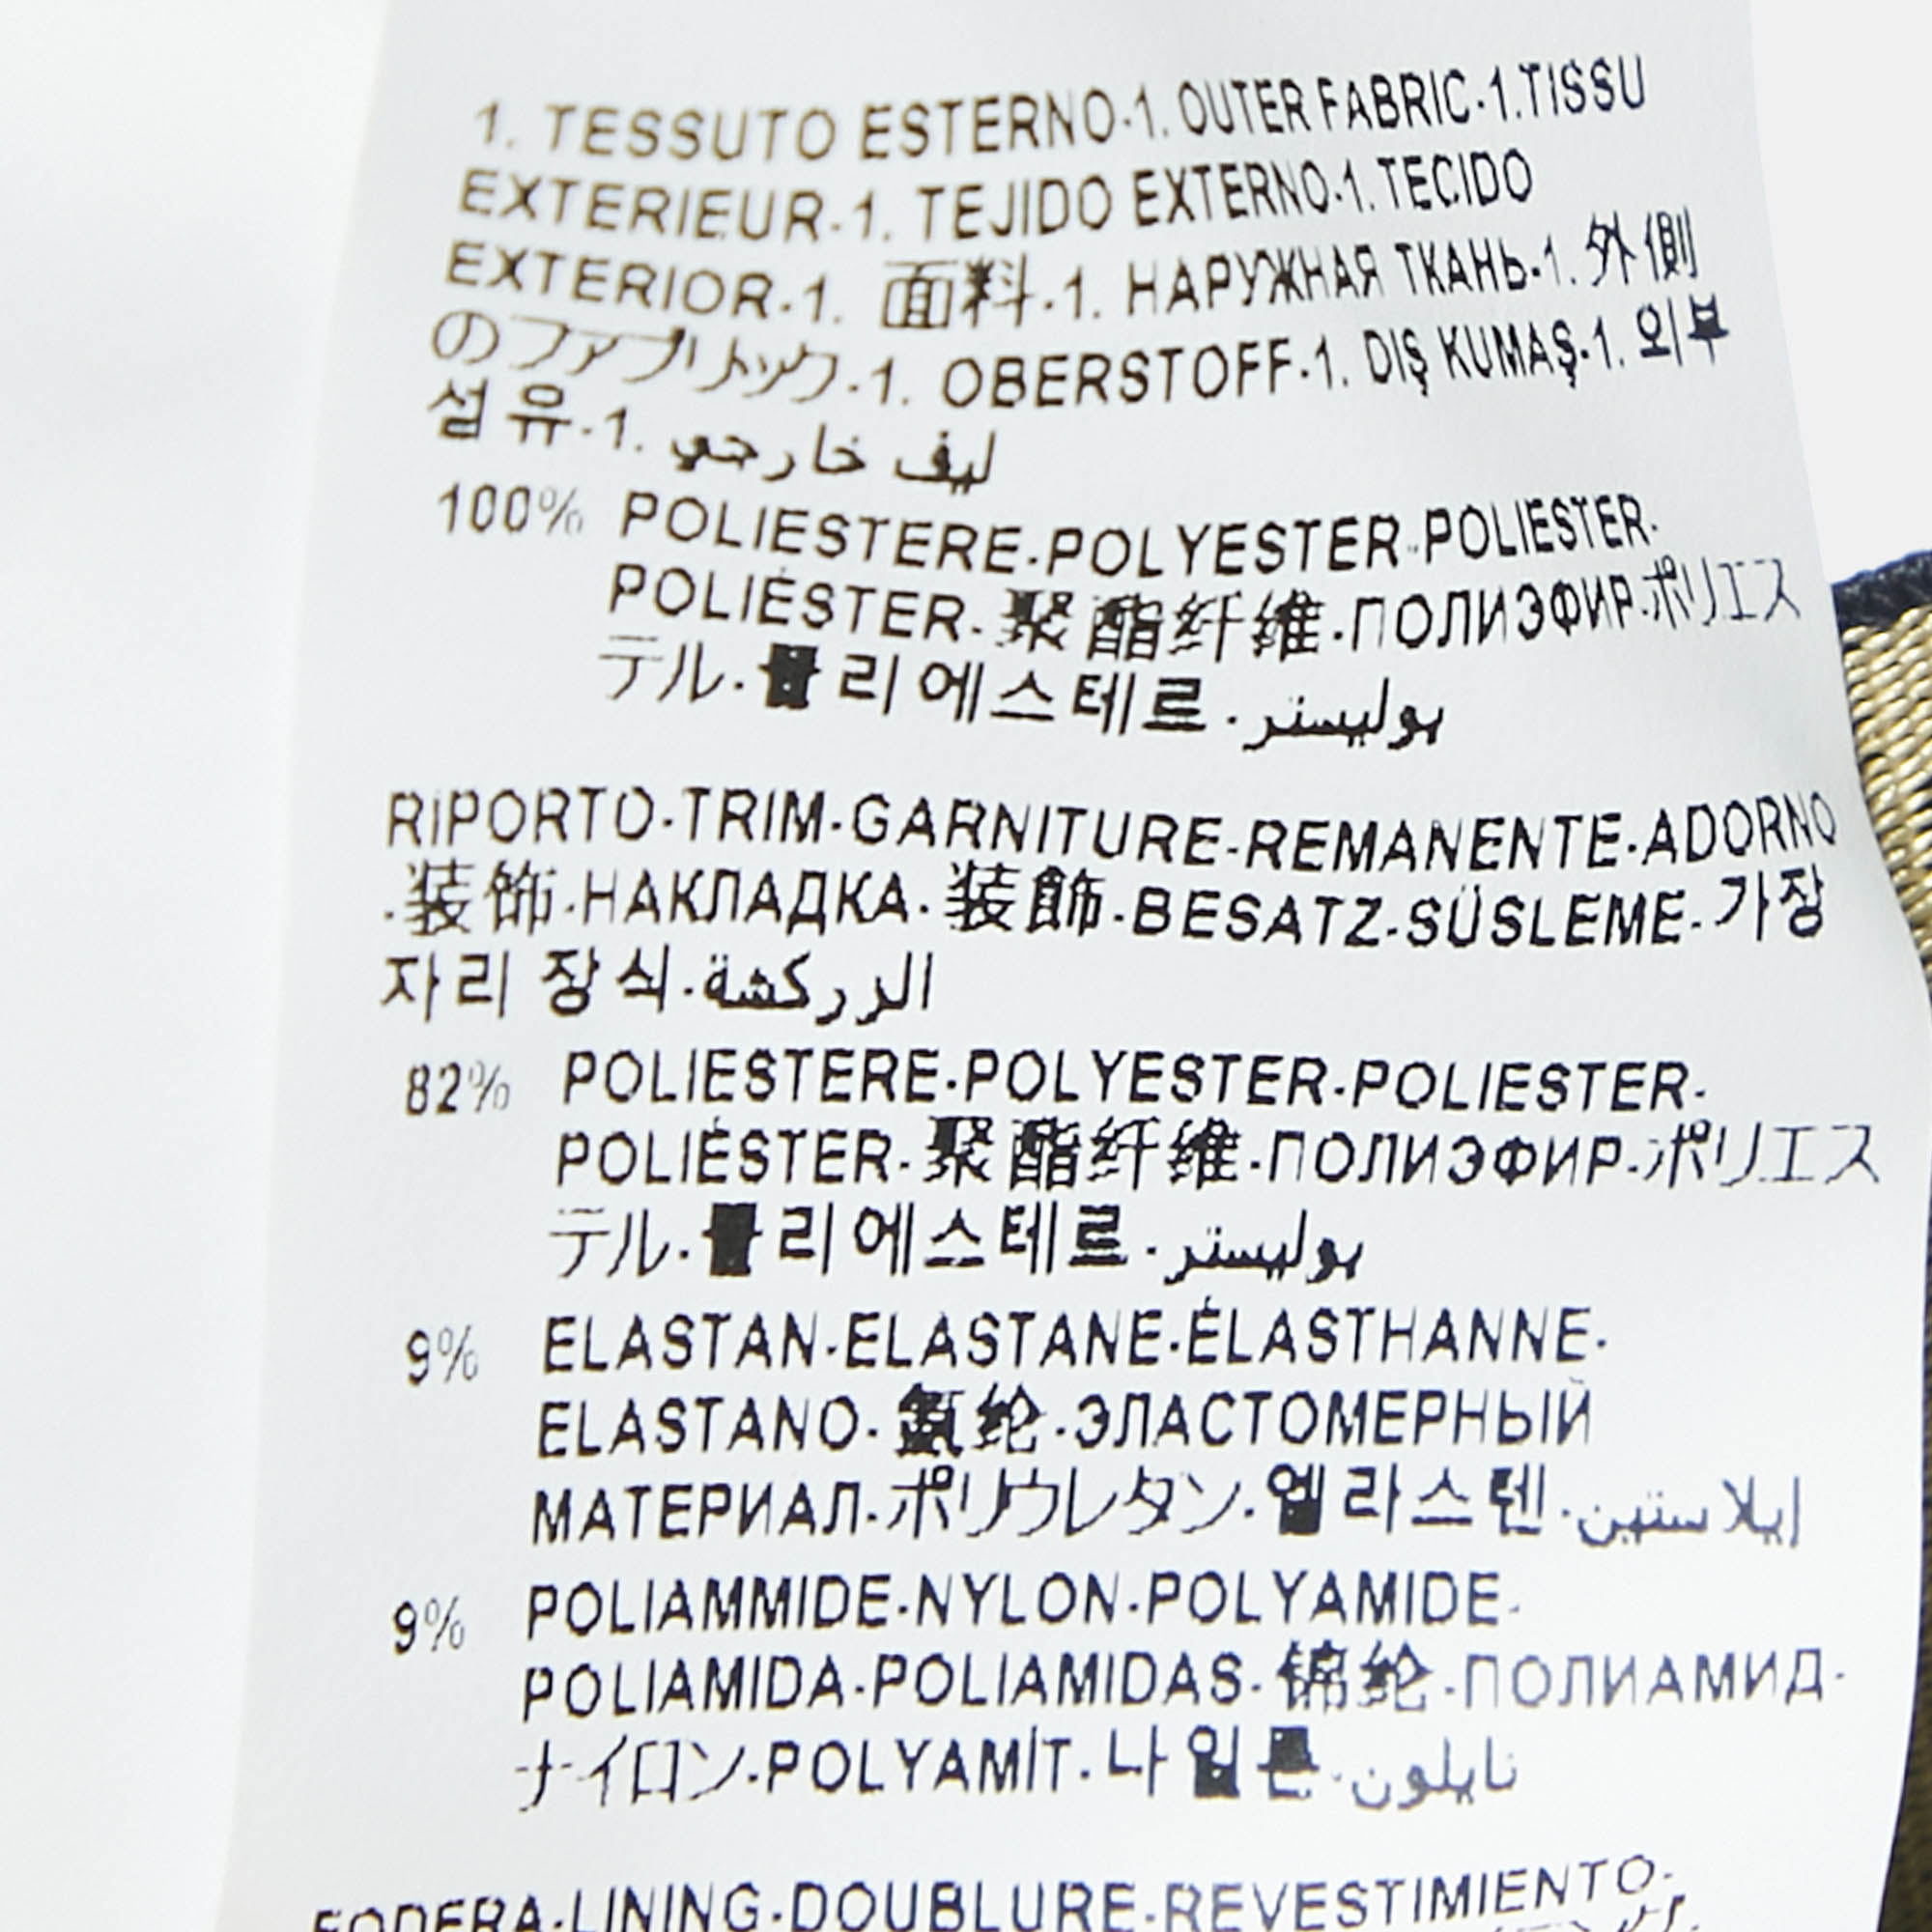 1. TESSUTO ESTERNO-1. OUTER FABRIC-1.TISSU
EXTERIEUR-1. TEJIDO EXTERNO-1. TECIDO
EXTERIOR-1. 面料-1. НАРУЖНАЯ ТКАНЬ-1. 外側
のファブリック-1. OBERSTOFF-1. DIŞ KUMAŞ-1. 외부
섬유-1. ليف خارجي
100% POLIESTERE-POLYESTER-POLIESTER-
POLIÉSTER-聚酯纤维-ПОЛИЭФИР-ポリエス
テル-폴리에스테르-بوليستر
RIPORTO-TRIM-GARNITURE-REMANENTE-ADORNO
-装饰-НАКЛАДКА-装飾-BESATZ-SÜSLEME-가장
자리 장식-الزركشة
82% POLIESTERE-POLYESTER-POLIESTER-
POLIÉSTER-聚酯纤维-ПОЛИЭФИР-ポリエス
テル-폴리에스테르-بوليستر
9% ELASTAN-ELASTANE-ÉLASTHANNE-
ELASTANO-氨纶-ЭЛАСТОМЕРНЫЙ
МАТЕРИАЛ-ポリウレタン-엘라스텐-إيلاستين
9% POLIAMMIDE-NYLON-POLYAMIDE-
POLIAMIDA-POLIAMIDAS-锦纶-ПОЛИАМИД-
ナイロン-POLYAMİT-나일론-نايلون
FODERA-LINING-DOUBLURE-REVESTIMIENTO-